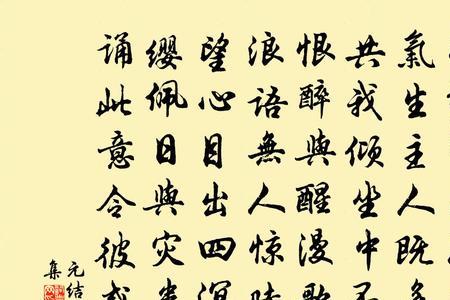 氣生主人既
共我傾坐中不
恨醉與醒漫歌
浪語無人惊時
望心目出四溟
纓佩日與灾
诵此意令彼或
元结
集